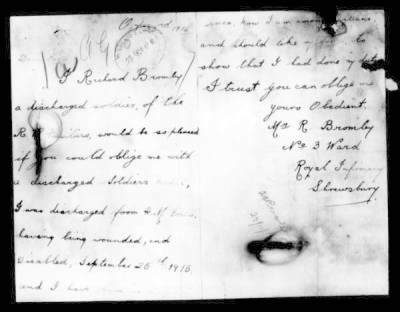 I Richard Bromley
a discharged soldier, of the
R would be so pleased
if you could oblige me with
a discharged Soldiers
I was discharged from
having being wounded, and
Disabled, September 25th 1915,
and I have
since, now I am among
and should like to
show that I had done my duty
I trust you can oblige me
yours Obedient.
Mr R Bromley
No 3 Ward
Royal Infirmary
Shrewsbury.